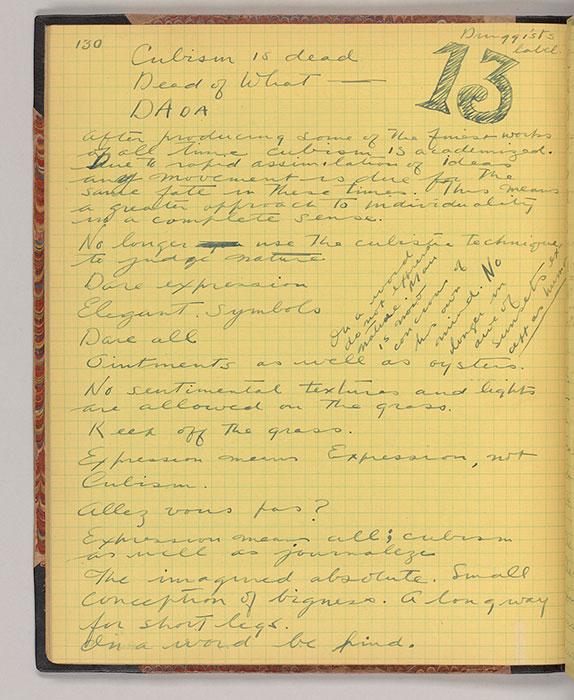 130
Druggists
label.
13
Cubism is dead
Dead of What —
DADA
After producing some of the finest works
of all time cubism is academized.
Due to rapid assimilation of ideas
any movement is due for the
same fate in these times. This means
a greater approach to individuality
in a complete sense.
No longer use the cubistic technique
to judge nature
Dare expression
Elegant symbols
Dare all
Ointments as well as oysters.
In a word
do not
nature
Man
is now
conscious of
his own
mind. No
longer in
awe of
sunsets
No sentimental textures and lights
are allowed on the grass.
Keep off the grass.
Expression means Expression, not
Cubism.
Allez vous pas?
Expression means all; cubism
as well as journaleze
The imagined absolute. Small
conception of bigness. A long way
for short legs.
In a word be kind.